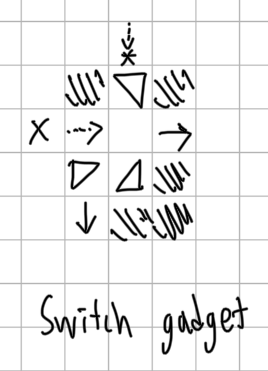 X
Switch gadget